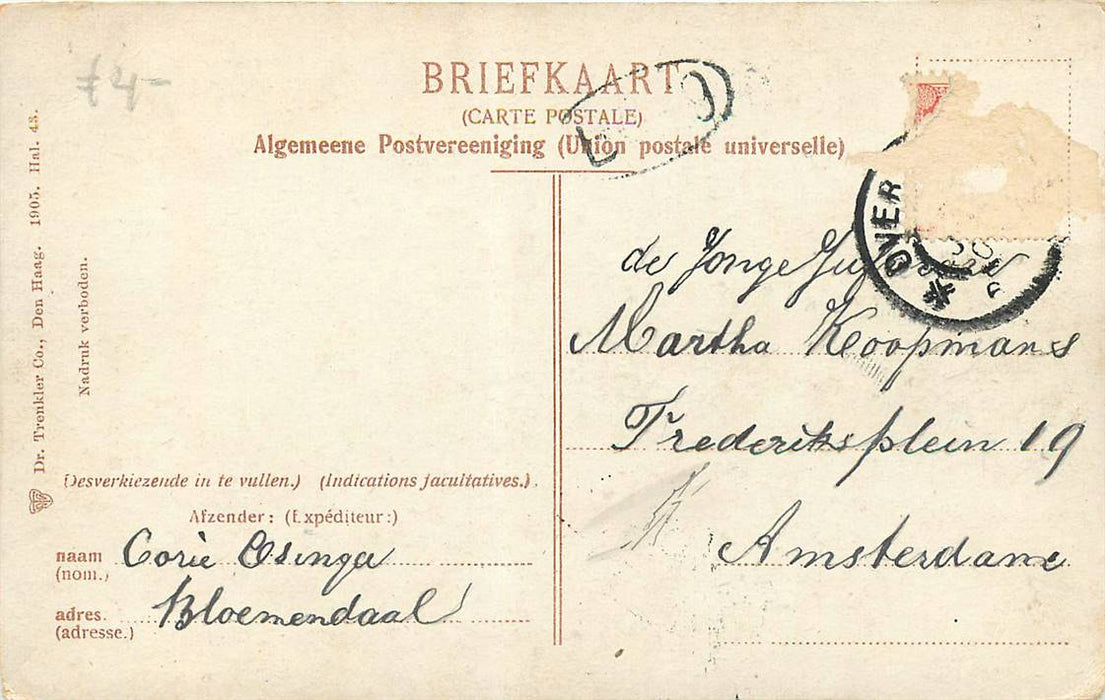 £4-
BRIEFKAART
(CARTE POSTALE)
Algemeene Postvereeniging (Union postale universelle)
Dr. Trenkler Co., Den Haag. 1905. Hal. 43.
Nadruk verboden.
OVER
de Jonge Juffrouw
Martha Koopmans
Frederiksplein 19
Amsterdam
Desverkiezende in te vullen.) (Indications facultatives.)
Afzender: (Expéditeur:)
naam Corie Osinga
(nom.)
adres. Bloemendaal
(adresse.)